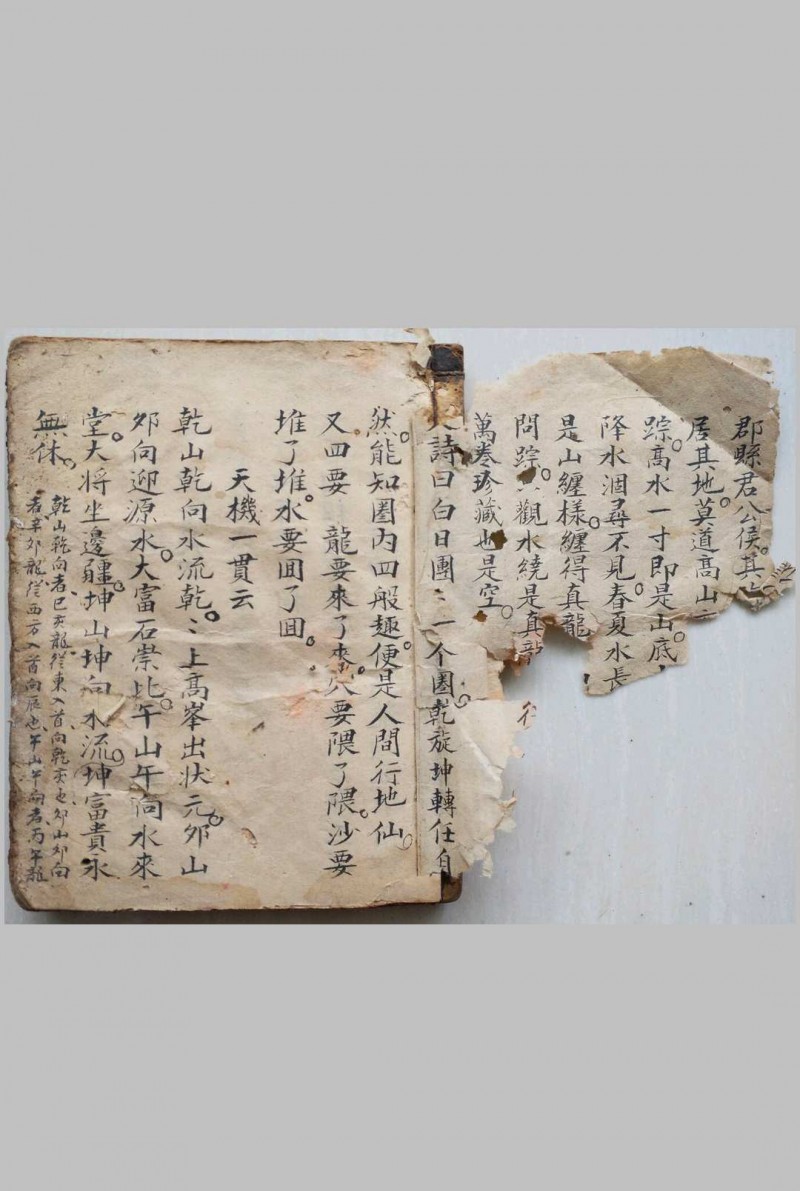 郡縣君公侯其
居其地莫道髙山
踪髙水一寸即是山底
降水涸尋不見春夏水長
是山纏様纏得真龍
問踪 觀水繞是真龍
萬卷珍藏也是空
詩曰白日團〻一个圈乾旋坤轉任自
然能知圈内四般趣便是人間行地仙
又四要 龍要來了來穴要隈了隈沙要
堆了堆水要囬了囬
天機一貫云
乾山乾向水流乾〻上髙峯出状元夘山
夘向迎源水大富石崇比午山午向水來
堂大将坐邊疆坤山坤向水流坤富貴永
無休
乾山乾向者巳亥龍從東入首向乾亥也夘山夘向
者辛夘龍從西方入首向辰也午山午向者丙午龍